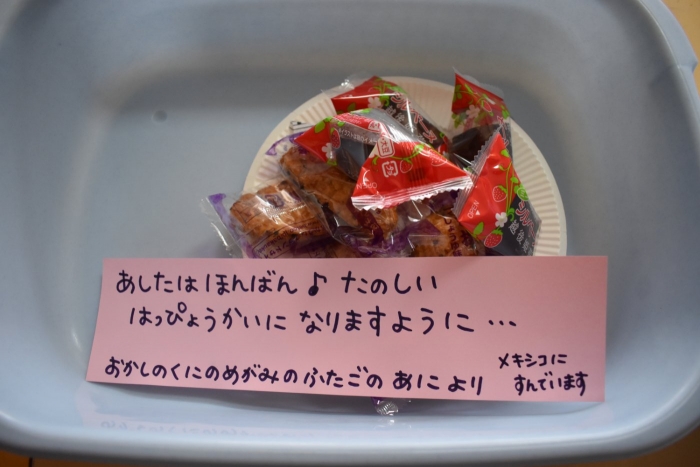 あしたは ほんばん♪ たのしい
はっぴょうかいに なりますように …
おかしのくにのめがみのふたごの あにより
メキシコに
すんでいます